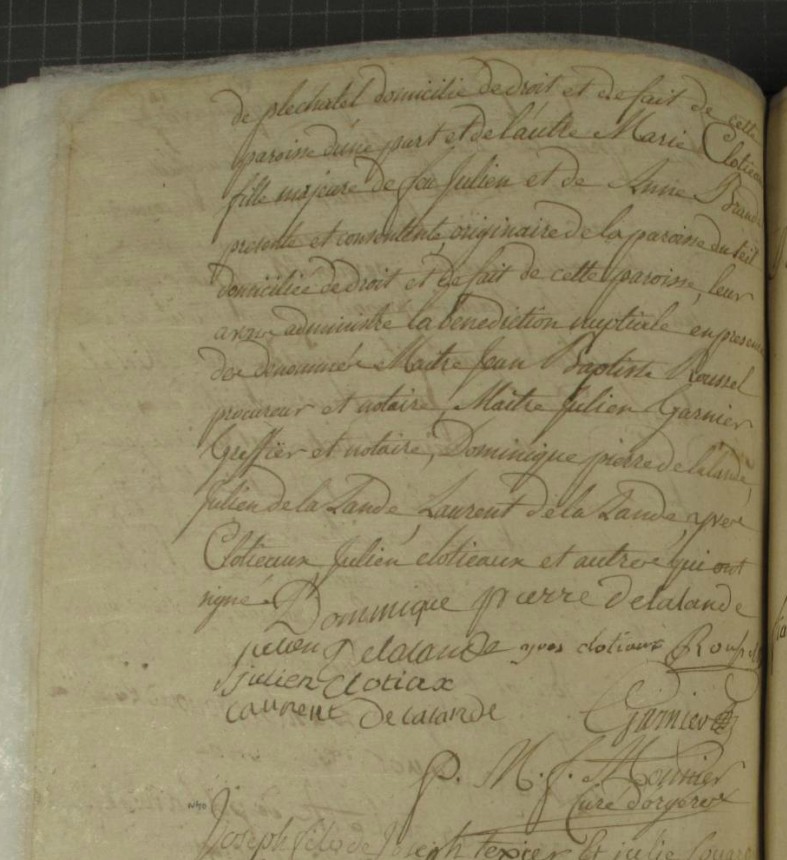 de plechatel domicilié de droit et de fait de cette
paroisse d'une part et de l'autre Marie Clotieaux
fille majeure de feu Julien et de Anne
presente et consentente originaire de la paroisse du teil
domiciliée de droit et de fait de cette paroisse, leur
avons administré la benediction nuptiale en presence
des denommés Maitre Jean Baptiste Roussel
procureur et notaire, Maitre Julien Garnier
Greffier et notaire, Dominique pierre de lalande,
Julien de la Lande, Laurent de la Lande yves
Clotieaux Julien clotieaux et autres qui ont
signé. Dominique pierre Delalande
julien Delalande yves clotiaux Roussel
julien Clotiax
Laurent Delalande Garnier
P. M. J. Mounier
Curé d'orgeres
Joseph fils de Joseph texier Et julie